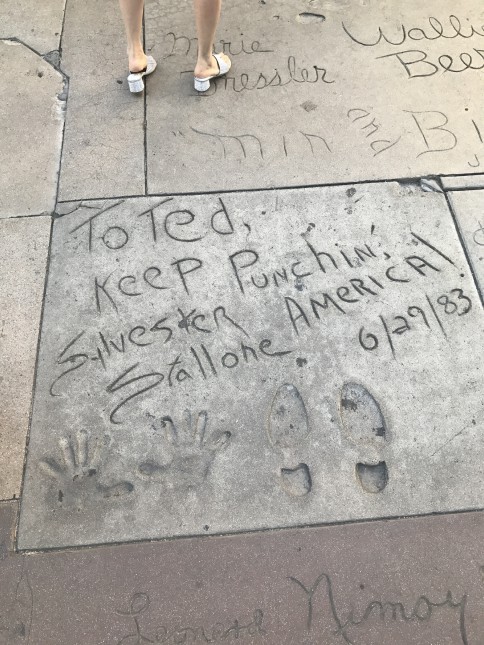 Marie Wallie
Dressler Beer
"Min and Bi
To Ted,
Keep Punchin', America!
Sylvester
Stallone 6/29/83
Leonard Nimoy